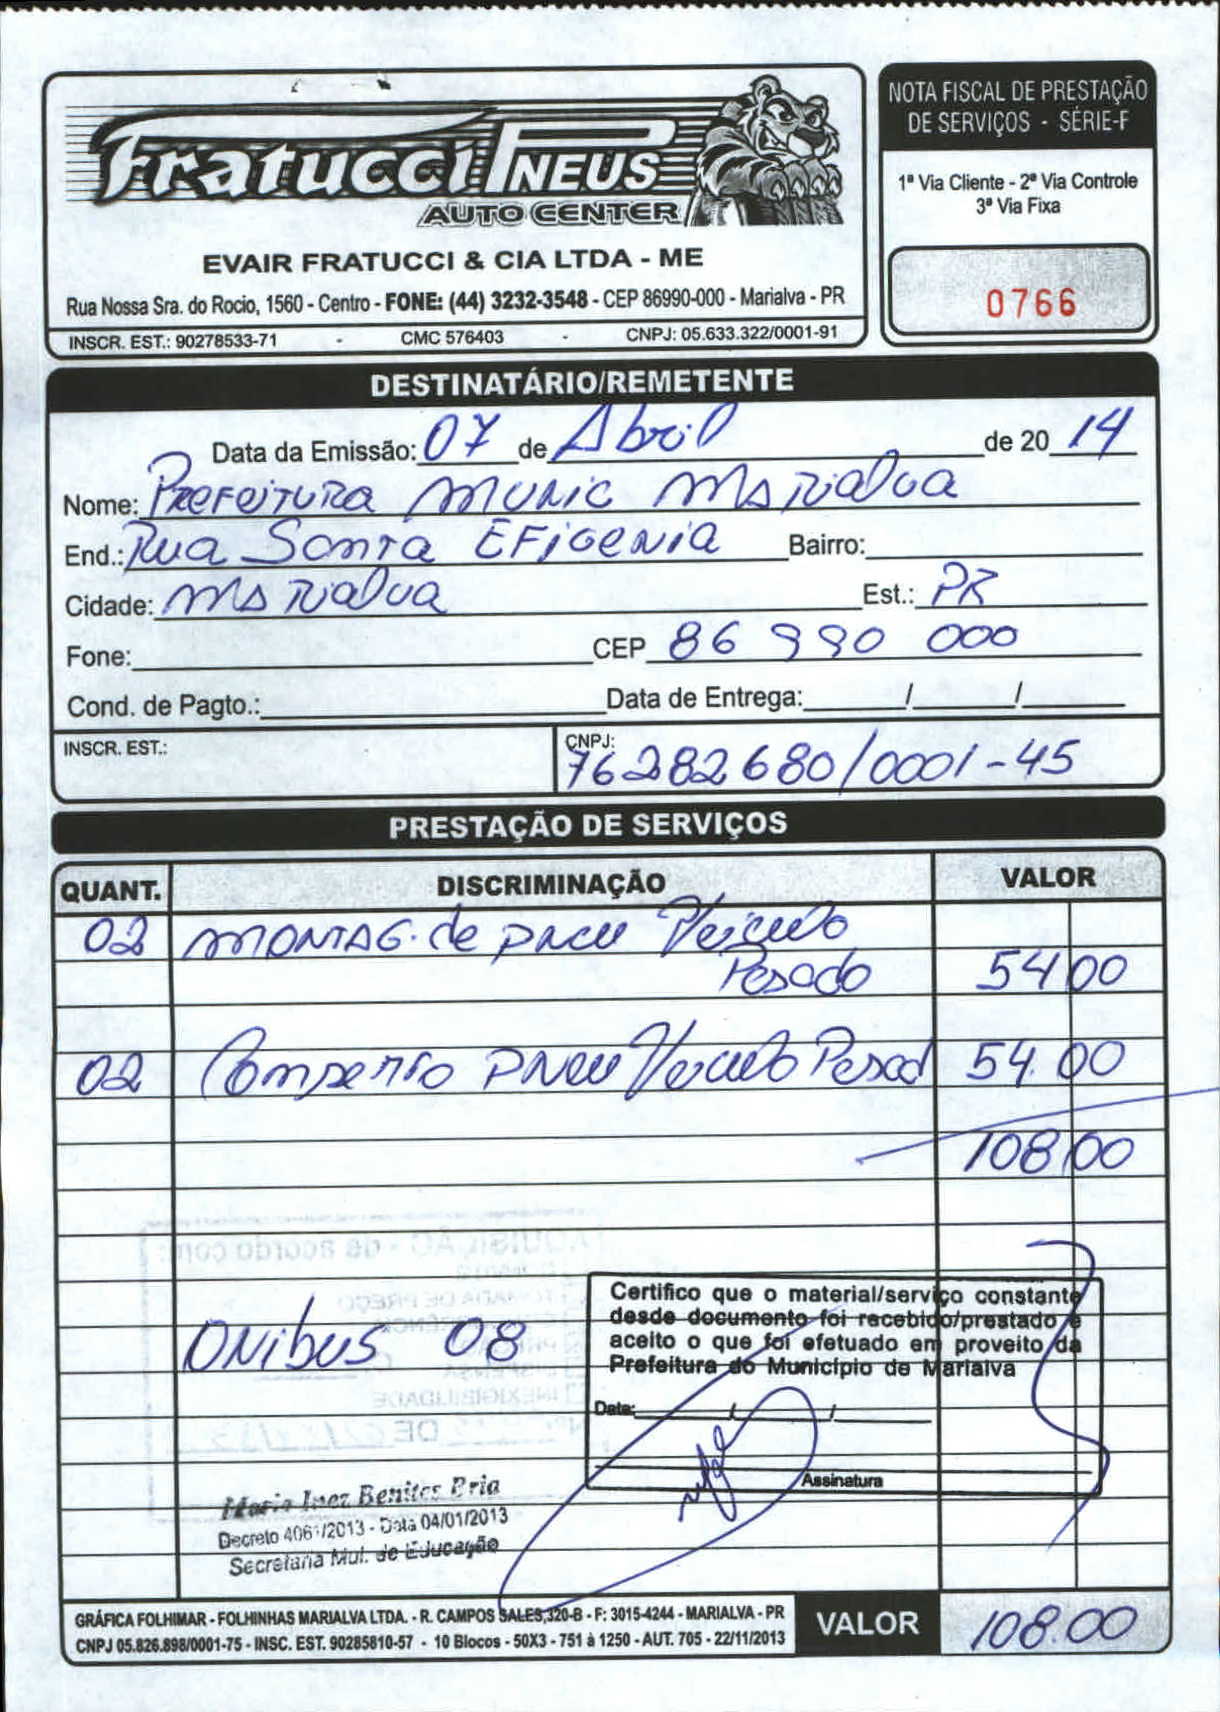 Fratucci PNEUS
AUTO CENTER
EVAIR FRATUCCI & CIA LTDA - ME
Rua Nossa Sra. do Rocio, 1560 - Centro - FONE: (44) 3232-3548 - CEP 86990-000 - Marialva - PR
INSCR. EST.: 90278533-71 - CMC 576403 - CNPJ: 05.633.322/0001-91
NOTA FISCAL DE PRESTAÇÃO
DE SERVIÇOS - SÉRIE-F
1ª Via Cliente - 2ª Via Controle
3ª Via Fixa
0766
DESTINATÁRIO/REMETENTE
Data da Emissão: 07 de Abril de 20 14
Nome: Prefeitura Munic Marialva
End.: Rua Santa Efigenia Bairro:
Cidade: Marialva Est.: PR
Fone: CEP 86 990 000
Cond. de Pagto.: Data de Entrega: / /
INSCR. EST.: CNPJ: 76282680/0001-45
PRESTAÇÃO DE SERVIÇOS
QUANT. DISCRIMINAÇÃO VALOR
02 Montag. de pneu Veiculo
Pesado 54,00
02 Conserto pneu Veiculo Pesad 54.00
108,00
AQUISIÇÃO - de acordo com:
TOMADA DE PREÇO
DISPENSA
INEXIGIBILIDADE
DE
Certifico que o material/serviço constante
desde documento foi recebido/prestado e
aceito o que foi efetuado em proveito da
Prefeitura do Município de Marialva
Onibus 08
Data: / /
Assinatura
Maria Inez Benites Bria
Decreto 4061/2013 - Data 04/01/2013
Secretaria Mul. de Educação
GRÁFICA FOLHIMAR - FOLHINHAS MARIALVA LTDA. - R. CAMPOS SALES, 320-B - F: 3015-4244 - MARIALVA - PR
CNPJ 05.826.898/0001-75 - INSC. EST. 90285810-57 - 10 Blocos - 50X3 - 751 à 1250 - AUT. 705 - 22/11/2013
VALOR 108.00